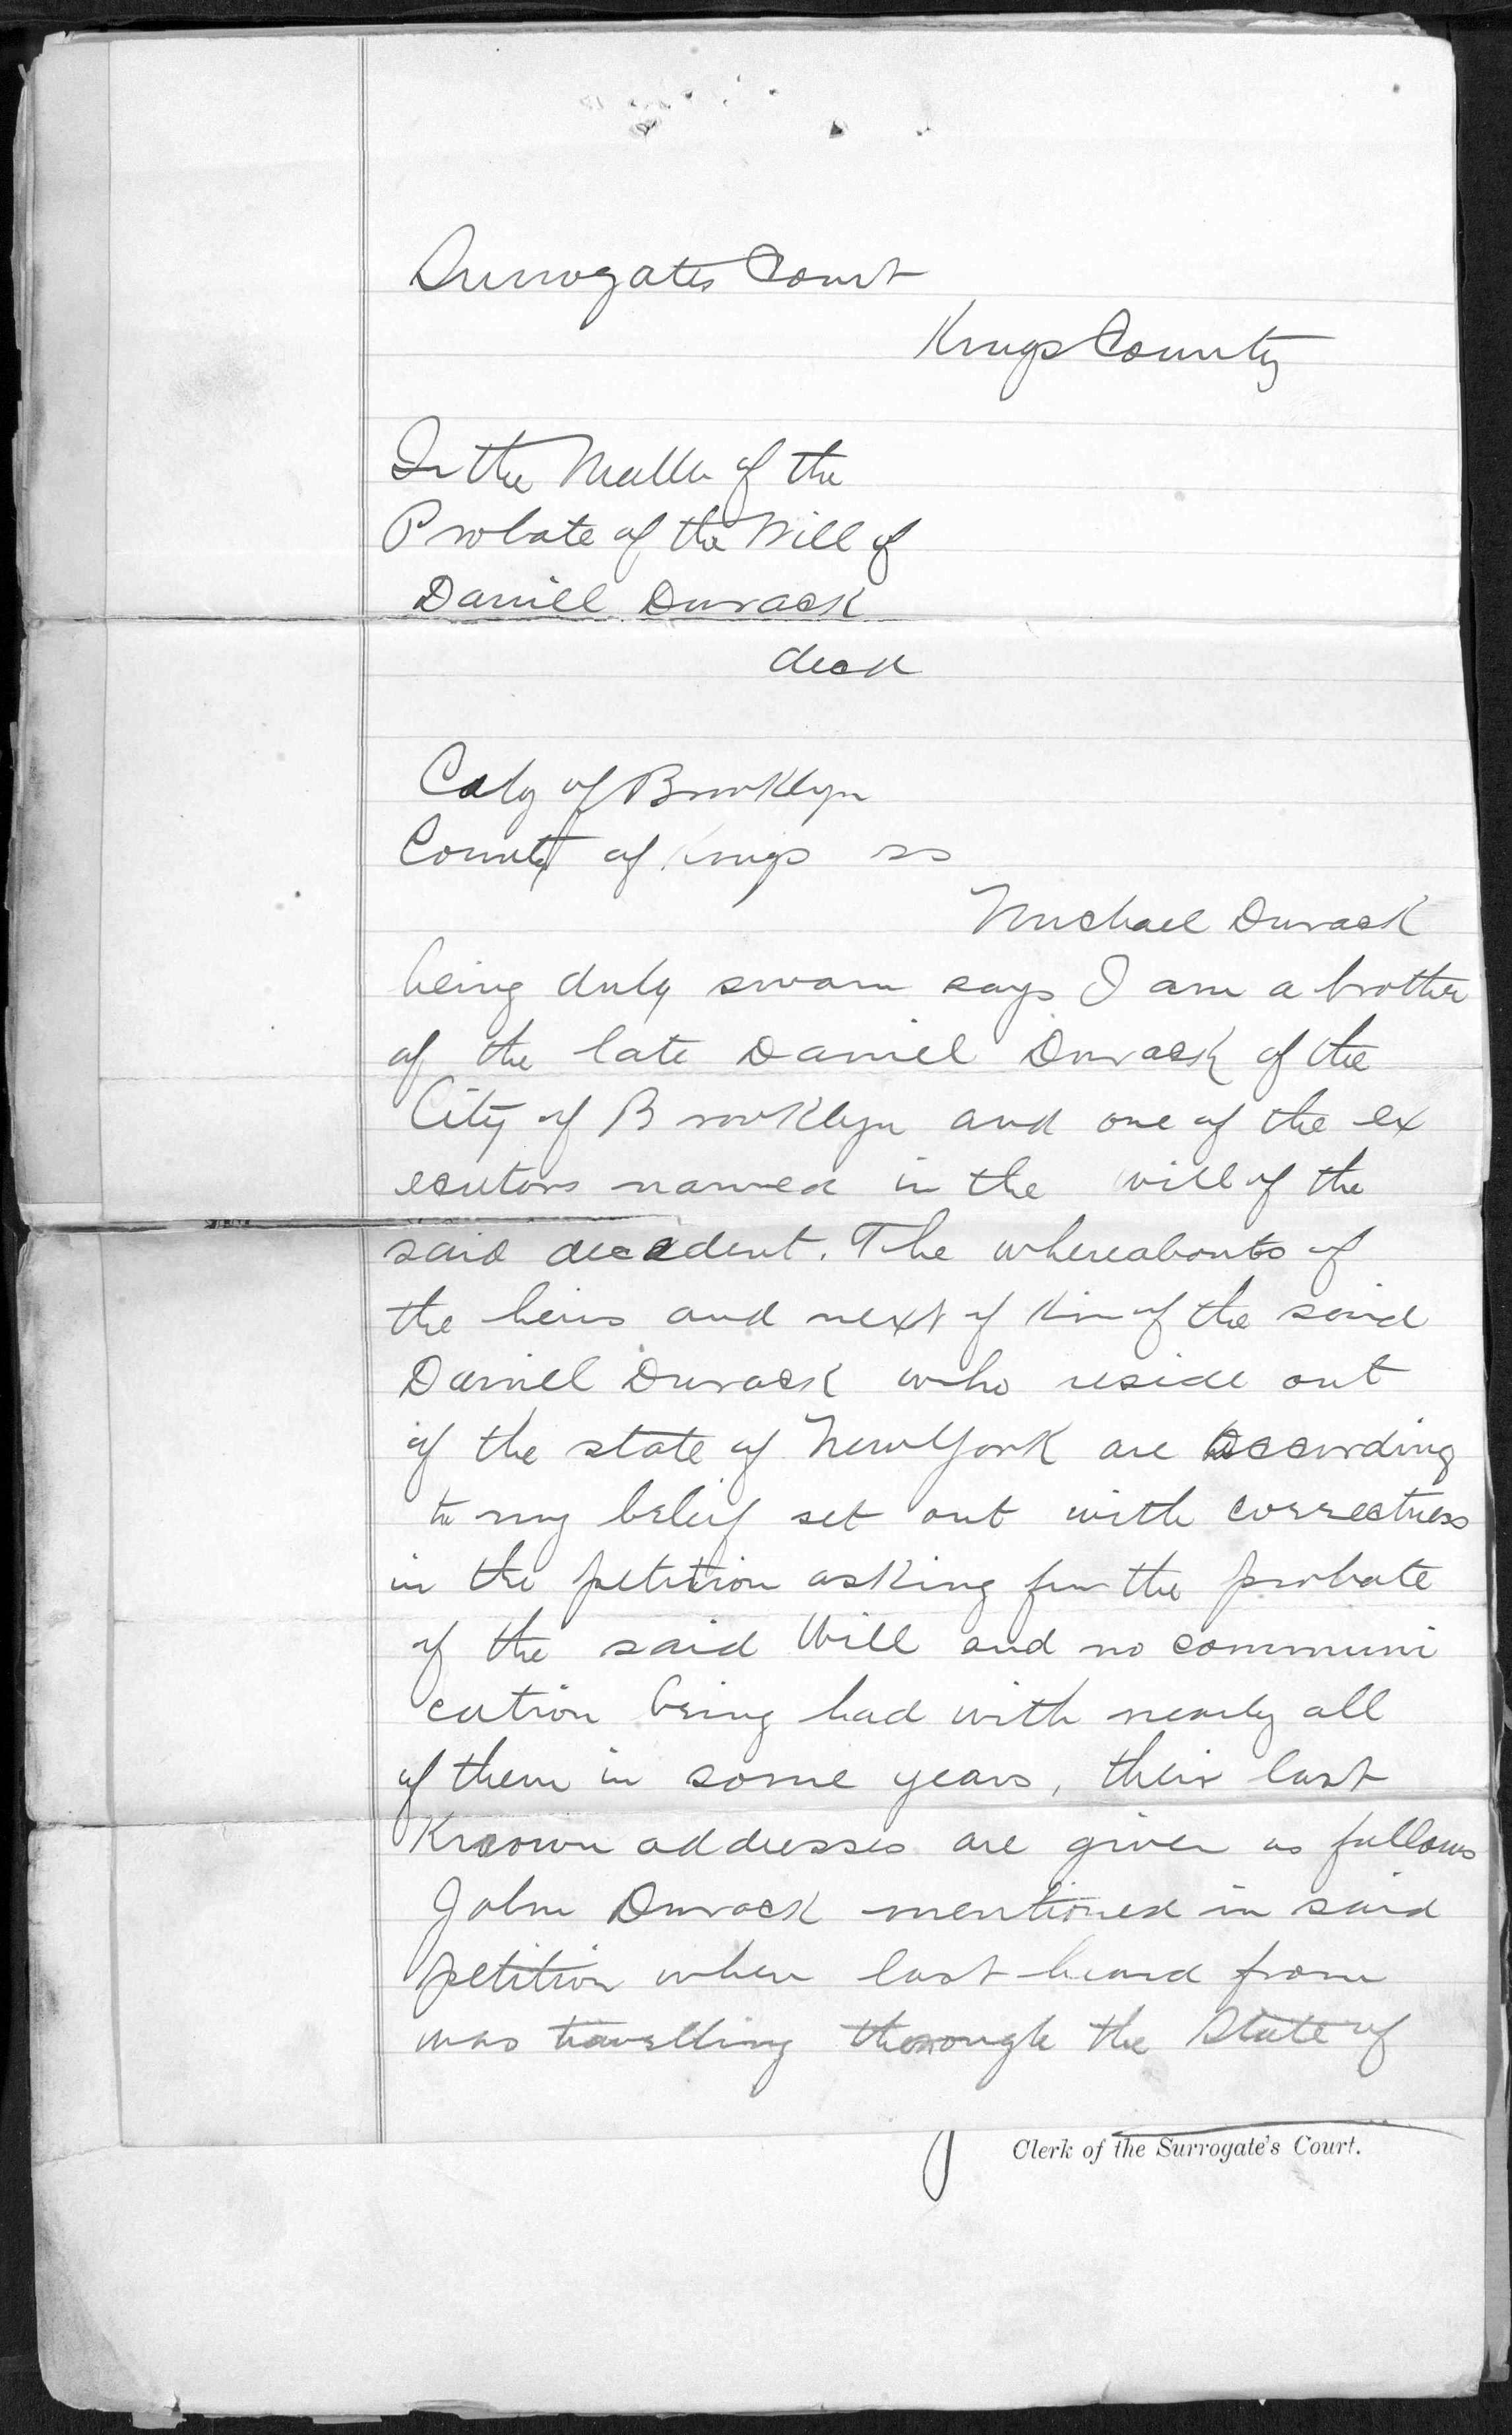 Surrogates Court
Kings County
In the Matter of the
Probate of the Will of
Daniel Durack
decd
City of Brooklyn
County of Kings ss
Michael Durack
being duly sworn says I am a brother
of the late Daniel Durack of the
City of Brooklyn and one of the ex
ecutors named in the will of the
said decedent. The whereabouts of
the heirs and next of kin of the said
Daniel Durack who reside out
of the state of New York are according
to my beleif set out with correctness
in the petition asking for the probate
of the said Will and no communi
cation being had with nearly all
of them in some years, their last
Known addresses are given as follows
John Durack mentioned in said
petition when last heard from
was travelling through the State of
Clerk of the Surrogate's Court.